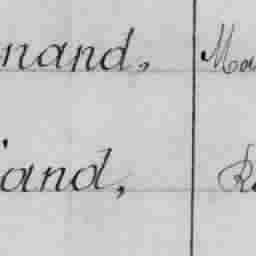 nand, Ma
and, R